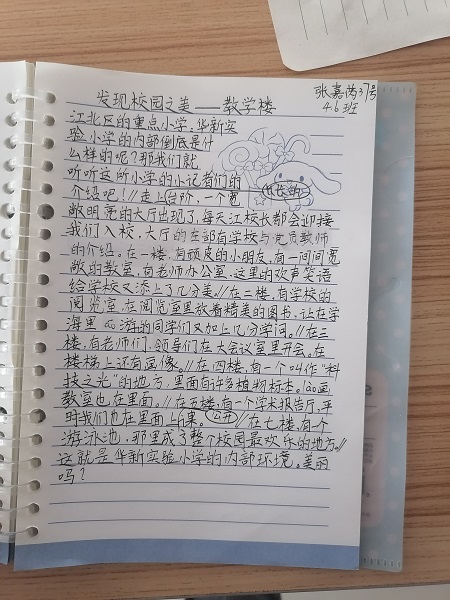 发现校园之美——教学楼
张嘉芮37号
4.6班
江北区的重点小学,华新实
验小学的内部倒底是什
么样的呢?那我们就
听听这所小学的小记者们的
介绍吧!//走上台阶,一个宽
敞明亮的大厅出现了,每天江校长都会迎接
我们入校,大厅的左部有学校与党员教师
的介绍。在一楼,有顽皮的小朋友,有一间间宽
敞的教室,有老师办公室,这里的欢声笑语
给学校又添上了几分美//在二楼,有学校的
阅览室,在阅览室里放着精美的图书,让在学
海里 游的同学们又加上几分学问。//在三
楼,有老师们、领导们在大会议室里开会,在
楼梯上还有画像。//在四楼,有一个叫作“科
技之光”的地方,里面有许多植物标本。
教室也在里面。//在五楼,有一个学术报告厅,平
时我们也在里面上课。(公开)//在七楼,有个
游泳池,那里成了整个校园最欢乐的地方。//
这就是华新实验小学的内部环境。美丽
吗?